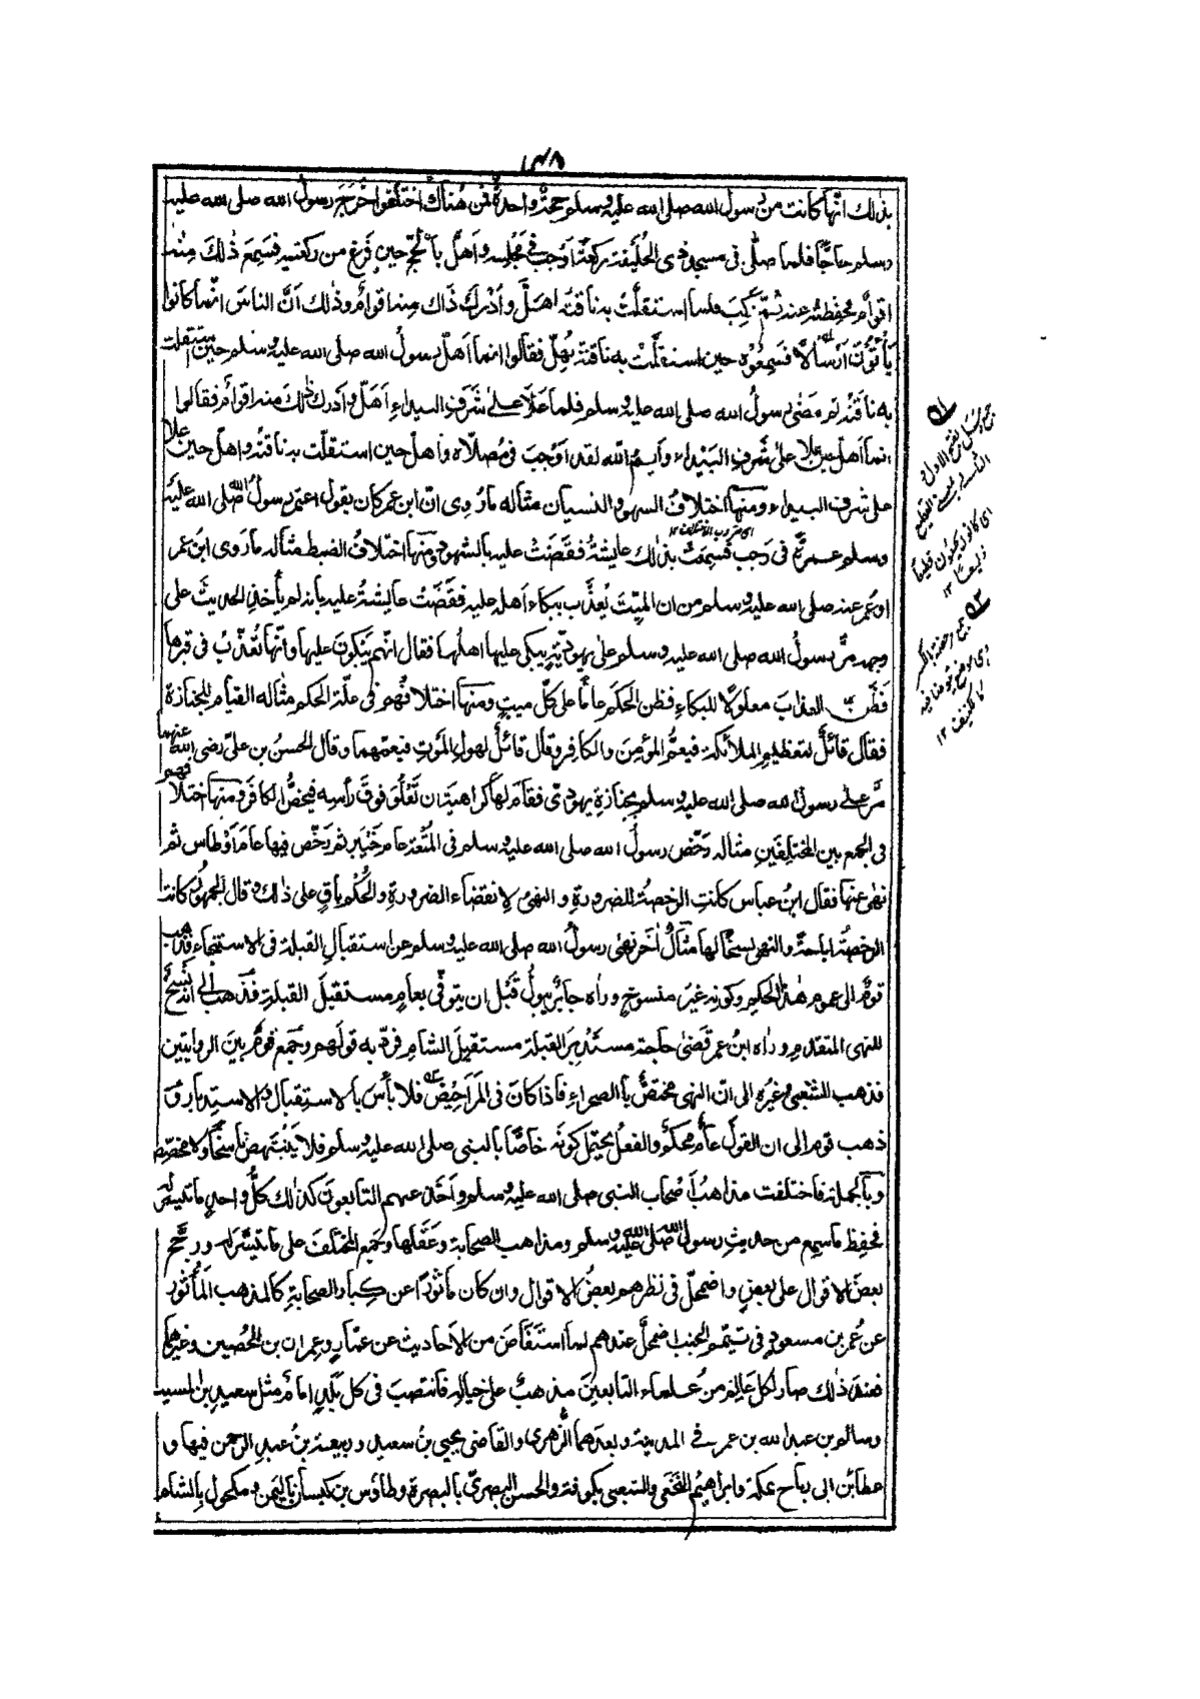 بذلك انّها كانت من رسول الله صلى الله عليه وسلم حجة واحدة فمن هُناك اختلفوا خَرَجَ رسول الله صلى الله عليه
وسلم حاجًّا فلما صلّى فى مسجد ذى الحُلَيفة ركعتَه أوجبَ فى مجلسه وأهلّ بالحج حين فَرَغ من ركعتيه فسَمِعَ ذٰلك منه
اقوامٌ فحفِظتُه عنه ثمّ ركِبَ فلما استقلَّتْ به ناقتُه اهلّ وأدْركَ ذاك منه اقوامٌ وذٰلك أنَّ الناسَ انّما كانوا
يأتونَ أرْسالًا فسَمِعُوْه حين استقلَّتْ به ناقتُه يُهِلّ فقالوا انما أهلّ رسولُ الله صلى الله عليه وسلم حين استقلت
به ناقتُه ثم مَضٰى رسولُ الله صلى الله عليه وسلم فلما عَلَا علىٰ شَرَفِ البيداءِ أهَلّ وأدرك ذٰلك منه اقوامٌ فقالوا
انما أهل حين علا علىٰ شَرَفِ البَيْداء وأيم الله لقد أَوْجَبَ فى مُصلّاه وأهلّ حين استقلّت به ناقتُه واهلّ حين علا
على شرف البيداء ومنها اختلافُ السهو والنسيان مثاله ما رُوِى انّ ابن عمر كان يقول اعتمر رسولُ الله صلى الله عليه
وسلم عمرةً فى رَجَب فسمِعَتْ بذٰلك عايشةُ فقَضَتْ عليه بالسهو ومنها اختلافُ الضبط مثاله ما روى ابن عمر
او عُمر عنه صلى الله عليه وسلم من ان الميّتَ يُعذَّب ببكاء أهله عليه فقَضَتْ عايشةُ عليه بأنه لم يأخذِ الحديثَ على
وجهه مرَّ رسولُ الله صلى الله عليه وسلم علىٰ يهوديّةٍ يبكى عليها اهلُها فقال انّهم يَبْكونَ عليها وأنّها تُعذَّبُ فى قبرها
فظَنّ العذابَ معلولًا للبكاءِ فظن الحكمَ عامًّا على كلّ ميتٍ ومنها اختلافُهم فى علّة الحكم مثاله القيام للجنازة
فقال قائلٌ لتعظيمِ الملائكة فيعمُّ المؤمنَ والكافِر وقال قائلٌ لهولِ المَوتِ فيعمّهما وقال الحسنُ بن علىّ رضى الله عنهما
مُرَّ علىٰ رسول الله صلى الله عليه وسلم بجنازةِ يهودىّ فقام لها كراهيةَ ان تَعْلُوَ فوقَ رأسِه فيخصُّ الكافرَ ومنها اختلافهم
فى الجمع بين المختلِفَينِ مثاله رَخّص رسولُ الله صلى الله عليه وسلم فى المُتْعة عام خَيْبَر ثم رَخّص فيها عامَ أوْطاس ثم
نهٰى عنها فقال ابنُ عباس كانتِ الرخصةُ للضرورةِ والنهىُ لانقضاء الضرورةِ والحُكْم باقٍ على ذٰلك وقال الجمهورُ كانت
الرخصةُ اباحةً والنهىُ نسخًا لها مثالٌ اٰخر نهٰى رسولُ الله صلى الله عليه وسلم عن استقبالِ القبلة فى الاستنجاء فذهب
قومٌ الى عموم هٰذا الحكم وكونه غيرَ منسوخٍ وراٰه جابرٌ يبولُ قَبْل ان يتوفّى بعامٍ مستقبلَ القبلةِ فذهب الى أنه نَسْخٌ
للنهى المتقدم وراٰه ابنُ عمر قَضٰى حاجتَه مستَدْبِرَ القبلة مستقبِلَ الشام فردّ به قولَهم وجَمَع قومٌ بينَ الروايتين
فذهب الشعبى وغيرُه الى انّ النهى مختصٌّ بالصحراءِ فاذا كان فى المَرَاحِيْض فلا بأسَ بالاستقبال والاستدبار و
ذهب قوم الى ان القولَ عامٌّ محكمٌ والفعلُ يحتمِل كونَه خاصًّا بالنبى صلى الله عليه وسلم فلا يَنْتَهِض ناسخًا ولا مخصّصًا
وبالجملة فاختلفت مذاهبُ أصحابِ النبى صلى الله عليه وسلم وأخَذ عنهم التابعون كذٰلك كلُّ واحدٍ ما تيسّر له
فحفِظ ما سمِع من حديثِ رسول الله صلى الله عليه وسلم ومذاهب الصحابة وعَقَلها وجَمع المختلَفَ على ما تيسّر له ورجَّح
بعضَ الاقوال على بعضٍ واضمحلّ فى نظرهم بعضُ الاقوال وان كان مأثورًا عن كِبار الصحابةِ كالمذهب المأثور
عن عُمر وابن مسعودٍ فى تيمّم الجنب اضمحلَّ عندهم لما استَفَاضَ من الاحاديث عن عمّارٍ وعمران بن الحُصين وغيرهما
فعند ذٰلك صار لكل عالمٍ من عُلماء التابعينَ مذهبٌ على حيالِه فانتصبَ فى كل بَلَدٍ امامٌ مثلُ سعيدِ بن المسيب
وسالم بن عبد الله بن عمر فى المدينة وبعدهما الزُّهرى والقاضى يحيى بنُ سعيد وربيعة بنُ عبد الرحمن فيها و
عطاء بن ابى رباح بمكة وابراهيمُ النَّخَعى والشعبى بالكوفة والحسن البصرىّ بالبصرة وطاؤس بن كيسان باليمن ومكحول بالشام